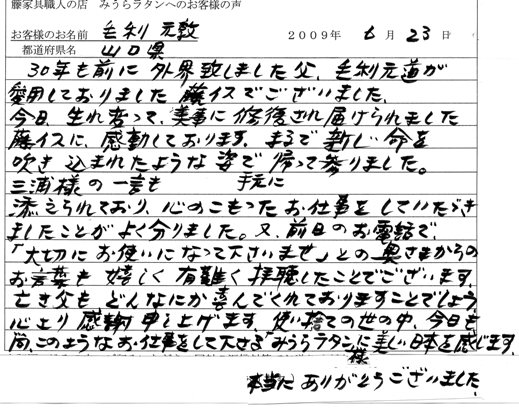 藤家具職人の店 みうらラタンへのお客様の声
お客様のお名前 毛利 元敦 2009年 6月 23日
都道府県名 山口県
30年も前に 外界致しました父、毛利元道が
愛用しておりました 藤イスでございました。
今日、生れ変って、美事に修復され届けられました
藤イスに、感動しております。まるで新しい命を
吹き込まれたような姿で帰って参りました。
三浦様の一言も 手元に
添えられており、心のこもったお仕事をしていただき
ましたことがよく分りました。又、前日のお電話で、
「大切にお使いになって下さいませ」との奥さまからの
お言葉も嬉しく有難く拝聴したことでございます。
亡き父もどんなにか喜んでくれておりますことでしょう
心より感謝申し上げます。使い捨ての世の中、今日も
尚、このようなお仕事をして下さる みうらラタン様に美しい日本を感じます。
本当に ありがとうございました。